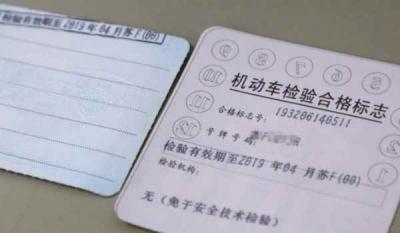 检验有效期至2019年04月苏F(00)
9 8 7 6 5
机动车检验合格标志
10
合格标志号: 193206140511
11
号牌号码:
12
检验有效期至2019年04月苏F(00)
1
检验机构:
无(免于安全技术检验)